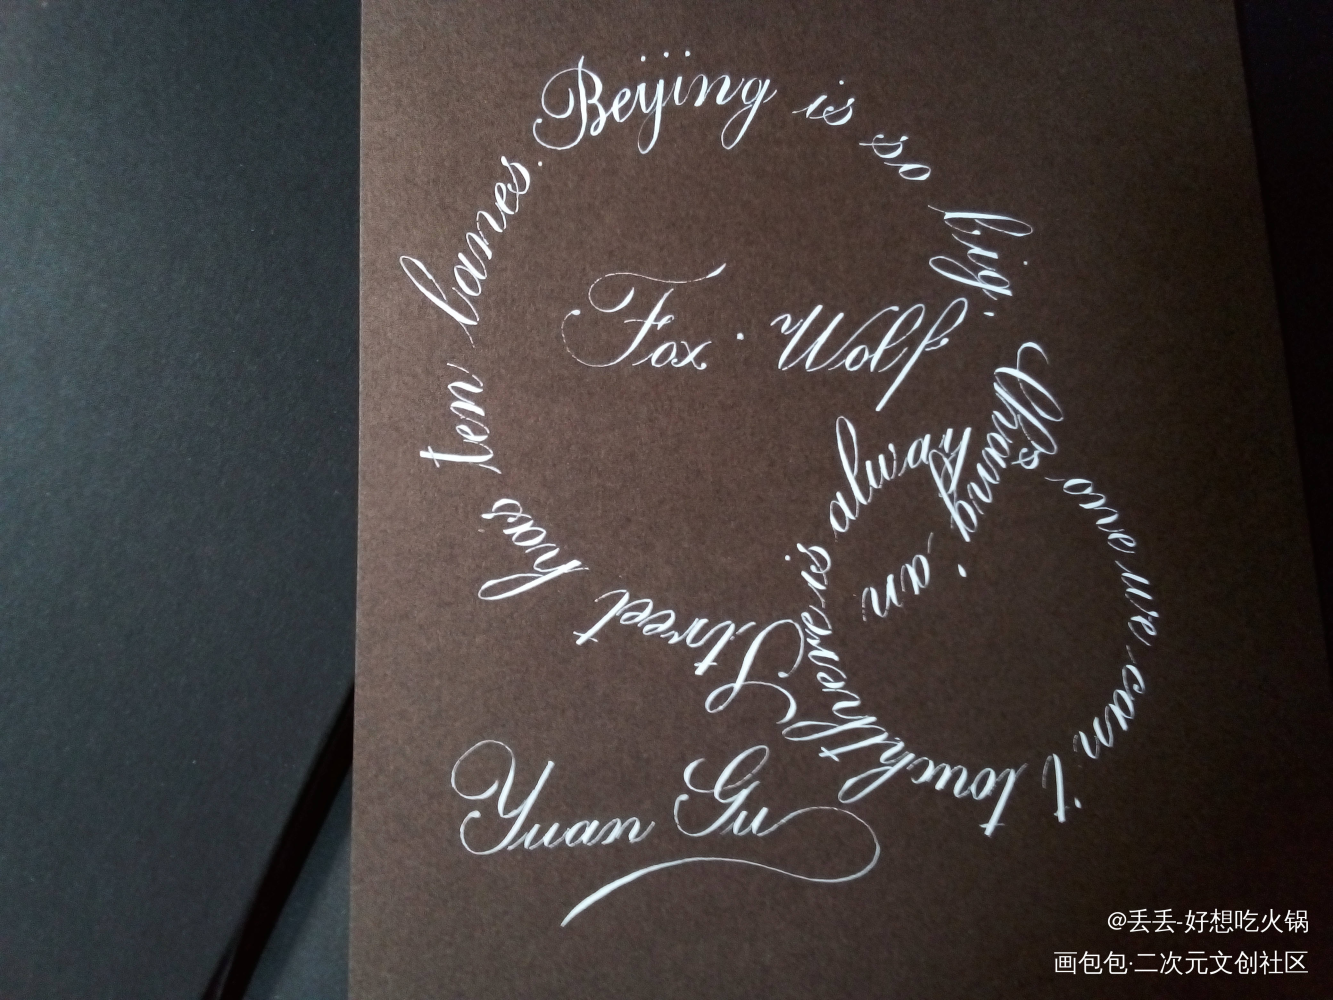 Beijing is so big. Chang'an Street has ten lanes.
Fox · Wolf
is always one we can't touch
Yuan Gu
@丢丢-好想吃火锅
画包包·二次元文创社区